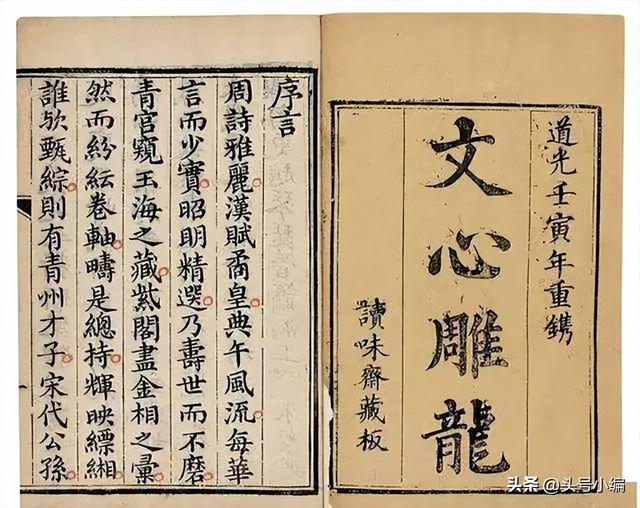 道光壬寅年重鐫
文心雕龍
讀味齋藏板
序言
周詩雅麗漢賦矞皇典午風流每華
言而少實昭明精選乃壽世而不磨
青宮窺玉海之藏紫閣盡金相之彙
然而紛紜卷軸疇是總持輝映縹緗
誰欤甄綜則有青州才子宋代公孫
头条 @头号小编